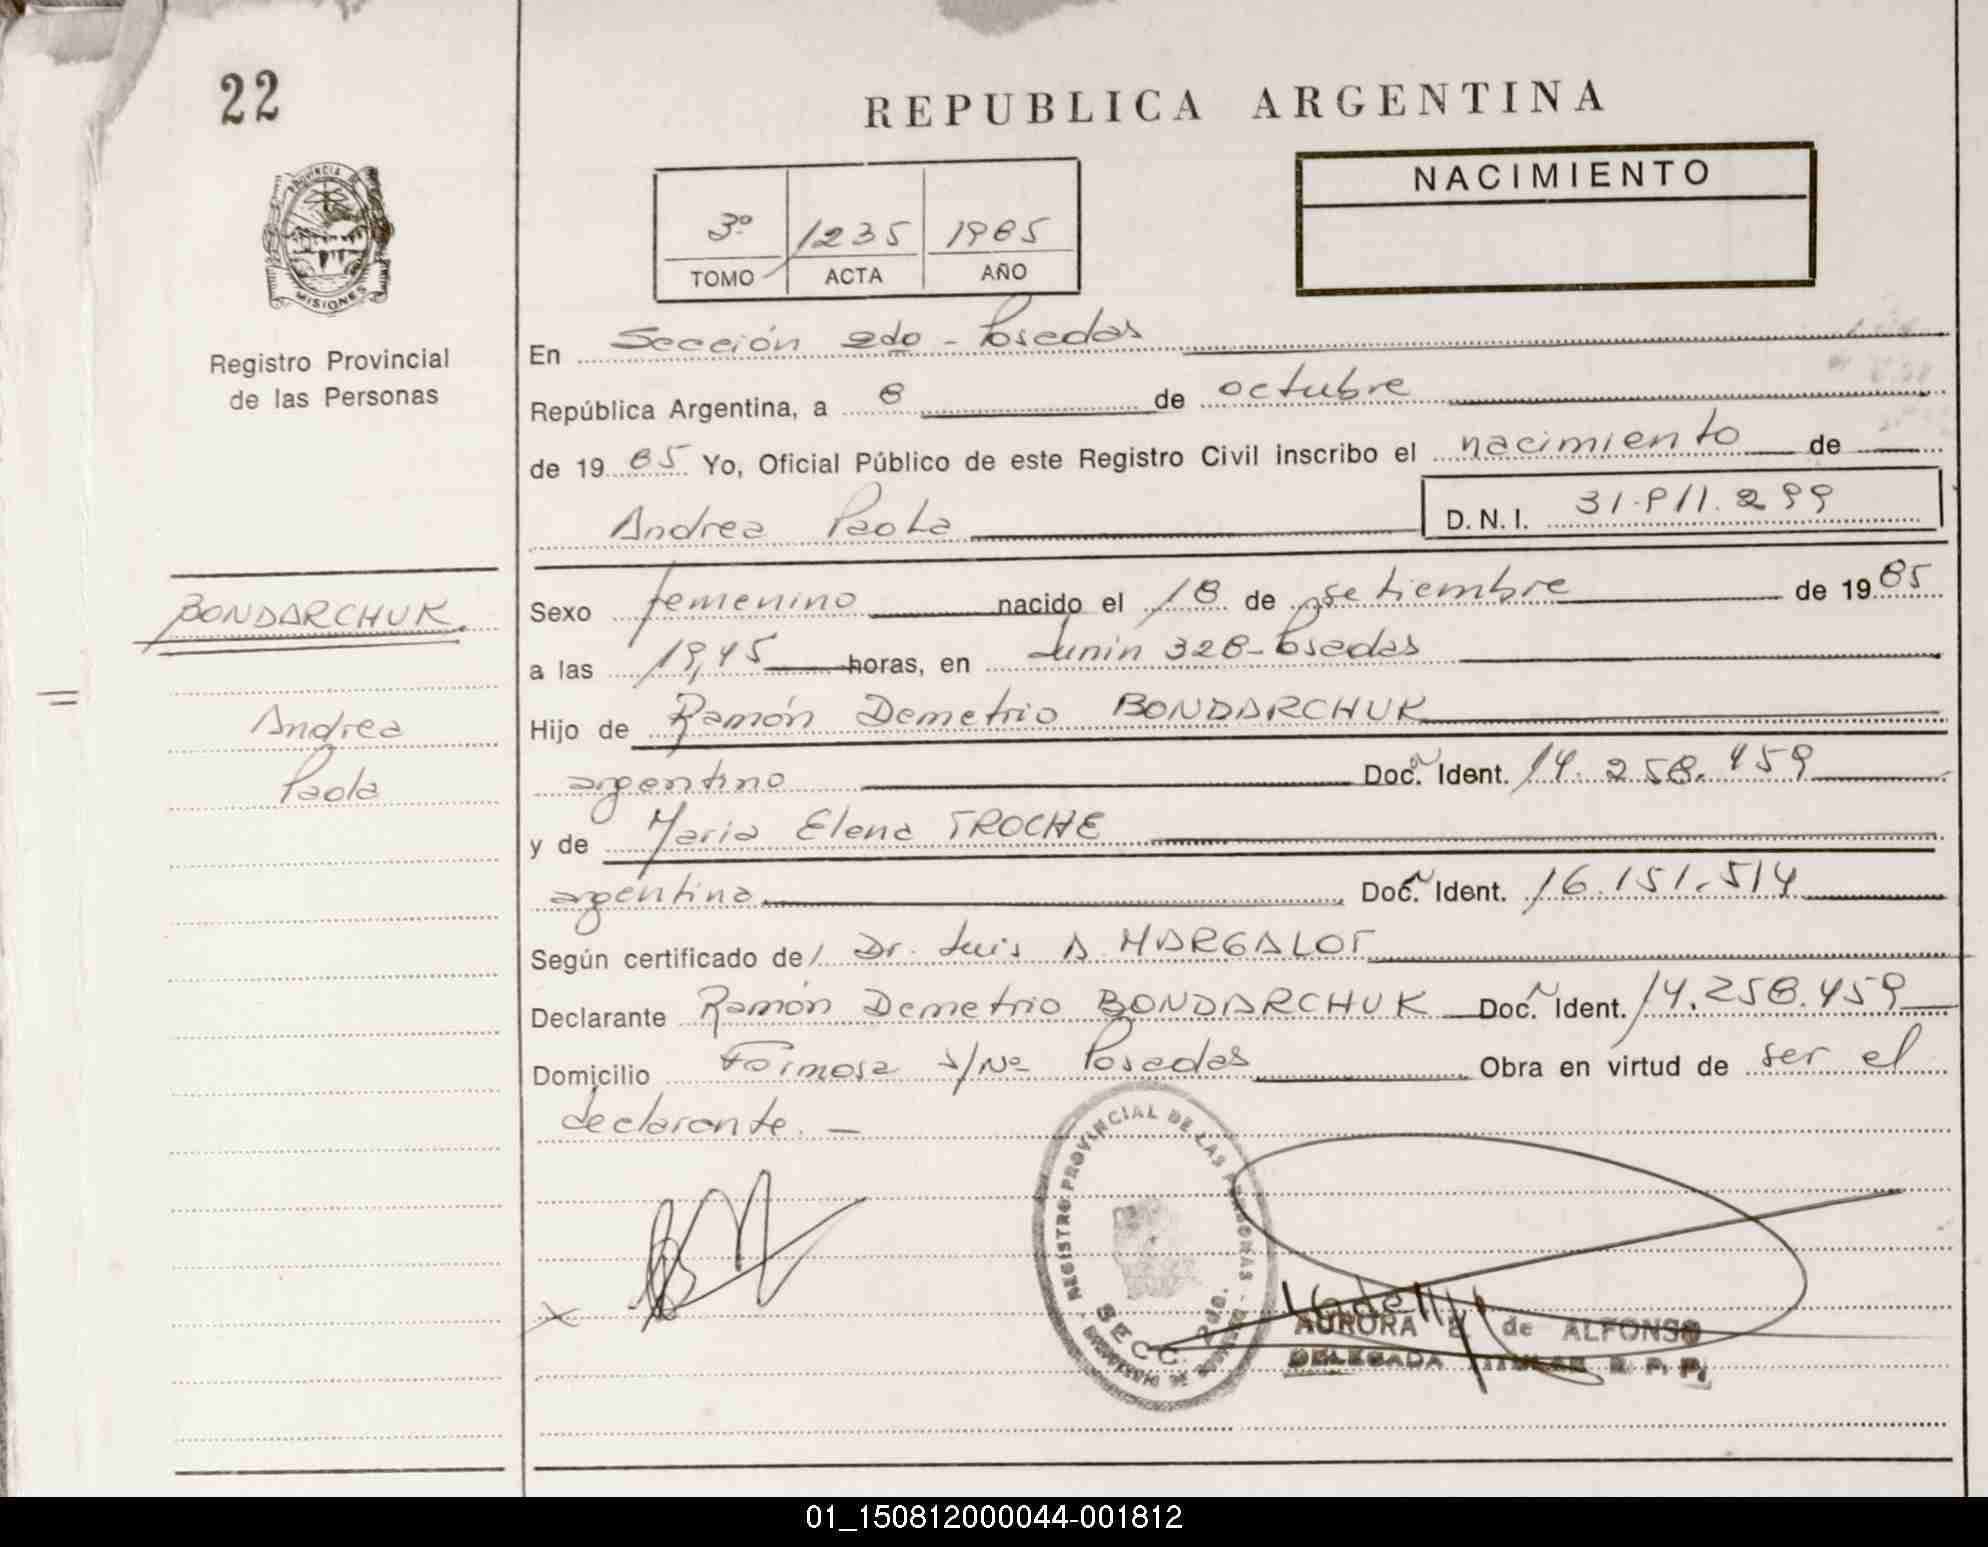 22
REPUBLICA ARGENTINA
PROVINCIA DE
MISIONES
Registro Provincial
de las Personas
3º 1235 1985
TOMO ACTA AÑO
NACIMIENTO
En Sección 2do - Posadas
República Argentina, a 8 de octubre
de 1985 Yo, Oficial Público de este Registro Civil inscribo el nacimiento de
Andrea Paola D.N.I. 31.911.299
BONDARCHUK.
Andrea
Paola
Sexo femenino nacido el 18 de setiembre de 1985
a las 19,45 horas, en Junin 328 - Posadas
Hijo de Ramón Demetrio BONDARCHUK
argentino Doc. Ident. 14.258.459
y de Maria Elena TROCHE
argentina Doc. Ident. 16.151.514
Según certificado de Dr. Luis A MARGALOT
Declarante Ramón Demetrio BONDARCHUK Doc. Ident. 14.258.459
Domicilio Formosa s/Nº Posadas Obra en virtud de ser el
declarante. -
REGISTRO PROVINCIAL DE LAS PERSONAS
SECC. 2da.
AURORA de ALFONSO
DELEGADA TITULAR R. P. P.
01_150812000044-001812